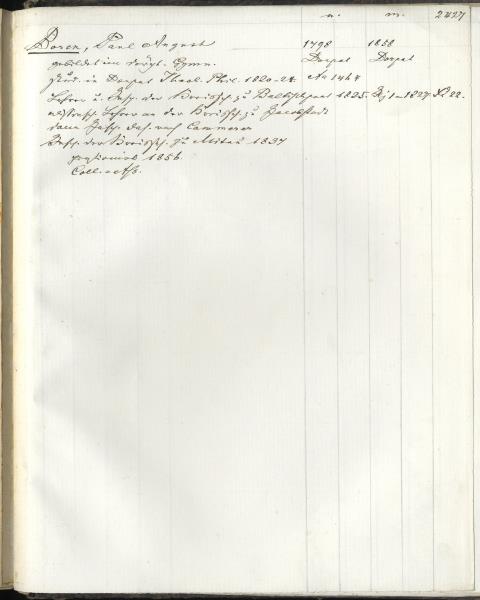 n. m. 2427
Boren, Paul August 1798 1858
gebildet im dörpt. Gymn. Dorpat Dorpat
Stud. in Dorpat Theol. Phil. 1820-24. No 1464
Lehrer u. Insp. der Kreissch. zu Baltischport 1825. 1827
Lehrer an der Kreissch. zu Jacobstadt
dann Insp. das. nach Cammerer
Insp. der Kreissch. zu Mitau 1837
1856.
Coll. Ass.